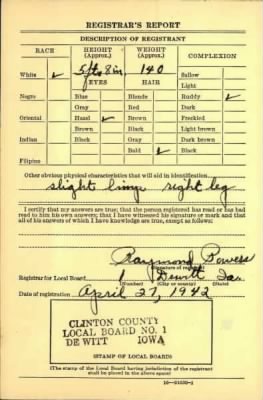 REGISTRAR'S REPORT
DESCRIPTION OF REGISTRANT
RACE HEIGHT (Approx.) WEIGHT (Approx.) COMPLEXION
White ✓ 5 ft 8 in, 140 Sallow
EYES HAIR Light
Negro Blue Blonde Ruddy ✓
Gray Red Dark
Oriental Hazel ✓ Brown Freckled
Brown Black Light brown
Indian Black Gray Dark brown
Bald ✓ Black
Filipino
Other obvious physical characteristics that will aid in identification
slight limp right leg
I certify that my answers are true; that the person registered has read or has had
read to him his own answers; that I have witnessed his signature or mark and that
all of his answers of which I have knowledge are true, except as follows:
Raymond Powers
(Signature of registrar)
Registrar for Local Board 1 Dewitt Ia.
(Number) (City or county) (State)
Date of registration April 27, 1942
CLINTON COUNTY
LOCAL BOARD NO. 1
DE WITT IOWA
(STAMP OF LOCAL BOARD)
(The stamp of the Local Board having jurisdiction of the registrant
shall be placed in the above space)